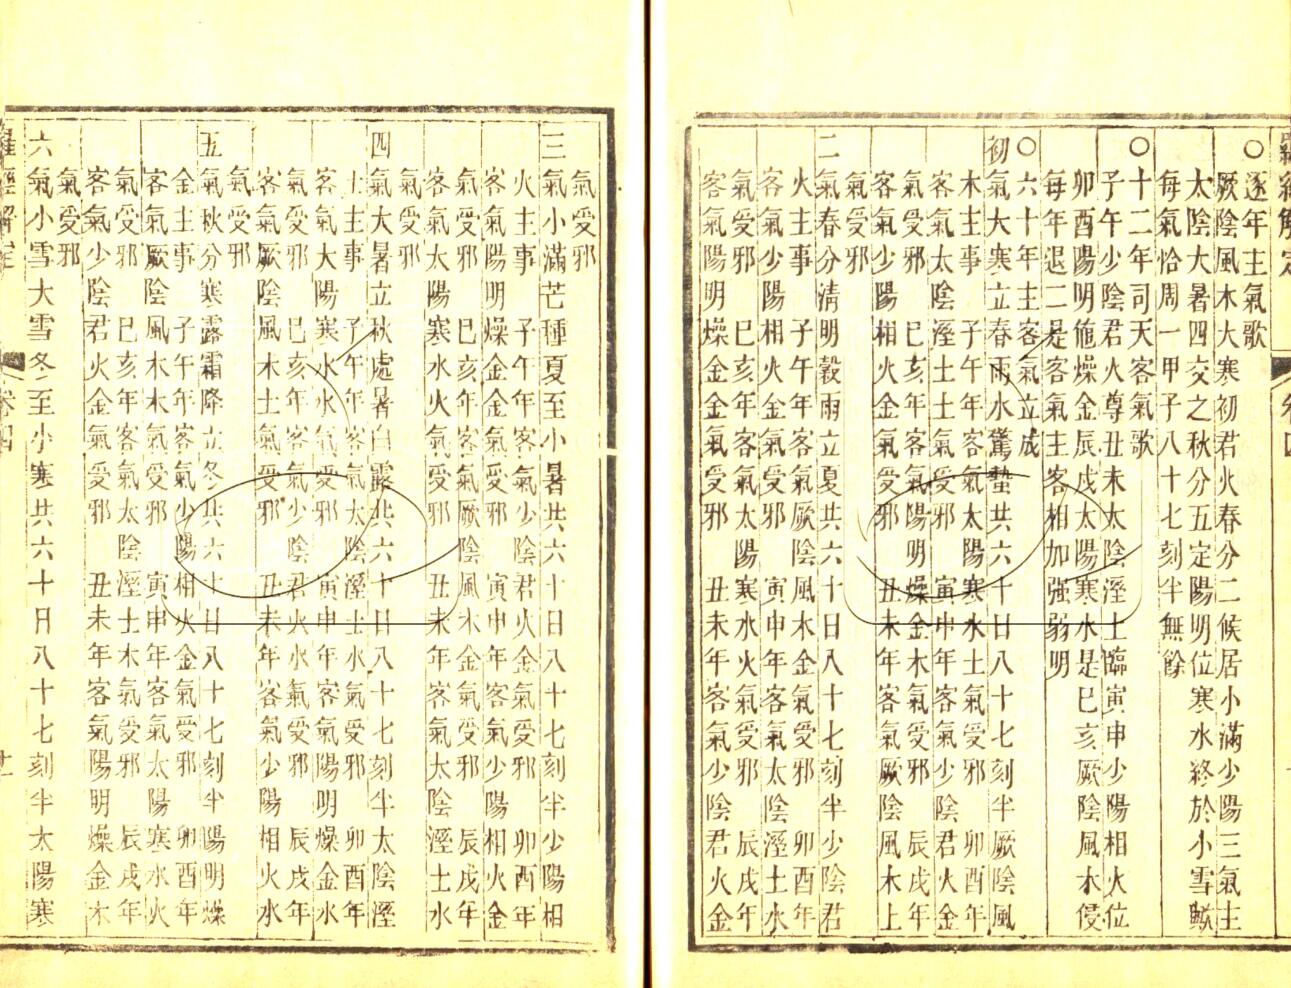 羅經解定
卷四
○逐年主氣歌
厥陰風木大寒初君火春分二候居小滿少陽三氣主
太陰大暑四交之秋分五定陽明位寒水終於小雪歟
每氣恰周一甲子八十七刻半無餘
○十二年司天客氣歌
子午少陰君火尊丑未太陰溼土臨寅申少陽相火位
卯酉陽明偹燥金辰戌太陽寒水是巳亥厥陰風木侵
每年退二是客氣主客相加强弱明
○六十年主客氣立成
初氣大寒立春雨水驚蟄共六十日八十七刻半厥陰風
木主事 子午年客氣太陽寒水土氣受邪 卯酉年
客氣太陰溼土土氣受邪 寅申年客氣少陰君火金
氣受邪 巳亥年客氣陽明燥金木氣受邪 辰戌年
客氣少陽相火金氣受邪 丑未年客氣厥陰風木土
氣受邪
二氣春分清明穀雨立夏共六十日八十七刻半少陰君
火主事 子午年客氣厥陰風木金氣受邪 卯酉年
客氣少陽相火金氣受邪 寅申年客氣太陰溼土水
氣受邪 巳亥年客氣太陽寒水火氣受邪 辰戌年
客氣陽明燥金金氣受邪 丑未年客氣少陰君火金
氣受邪
三氣小滿芒種夏至小暑共六十日八十七刻半少陽相
火主事 子午年客氣少陰君火金氣受邪 卯酉年
客氣陽明燥金金氣受邪 寅申年客氣少陽相火金
氣受邪 巳亥年客氣厥陰風木金氣受邪 辰戌年
客氣太陽寒水火氣受邪 丑未年客氣太陰溼土水
氣受邪
四氣大暑立秋處暑白露共六十日八十七刻半太陰溼
土主事 子午年客氣太陰溼土水氣受邪 卯酉年
客氣太陽寒水水氣受邪 寅申年客氣陽明燥金水
氣受邪 巳亥年客氣少陰君火水氣受邪 辰戌年
客氣厥陰風木土氣受邪 丑未年客氣少陽相火水
氣受邪
五氣秋分寒露霜降立冬共六十日八十七刻半陽明燥
金主事 子午年客氣少陽相火金氣受邪 卯酉年
客氣厥陰風木木氣受邪 寅申年客氣太陽寒水火
氣受邪 巳亥年客氣太陰溼土木氣受邪 辰戌年
客氣少陰君火金氣受邪 丑未年客氣陽明燥金木
氣受邪
六氣小雪大雪冬至小寒共六十日八十七刻半太陽寒
羅經解定
卷四